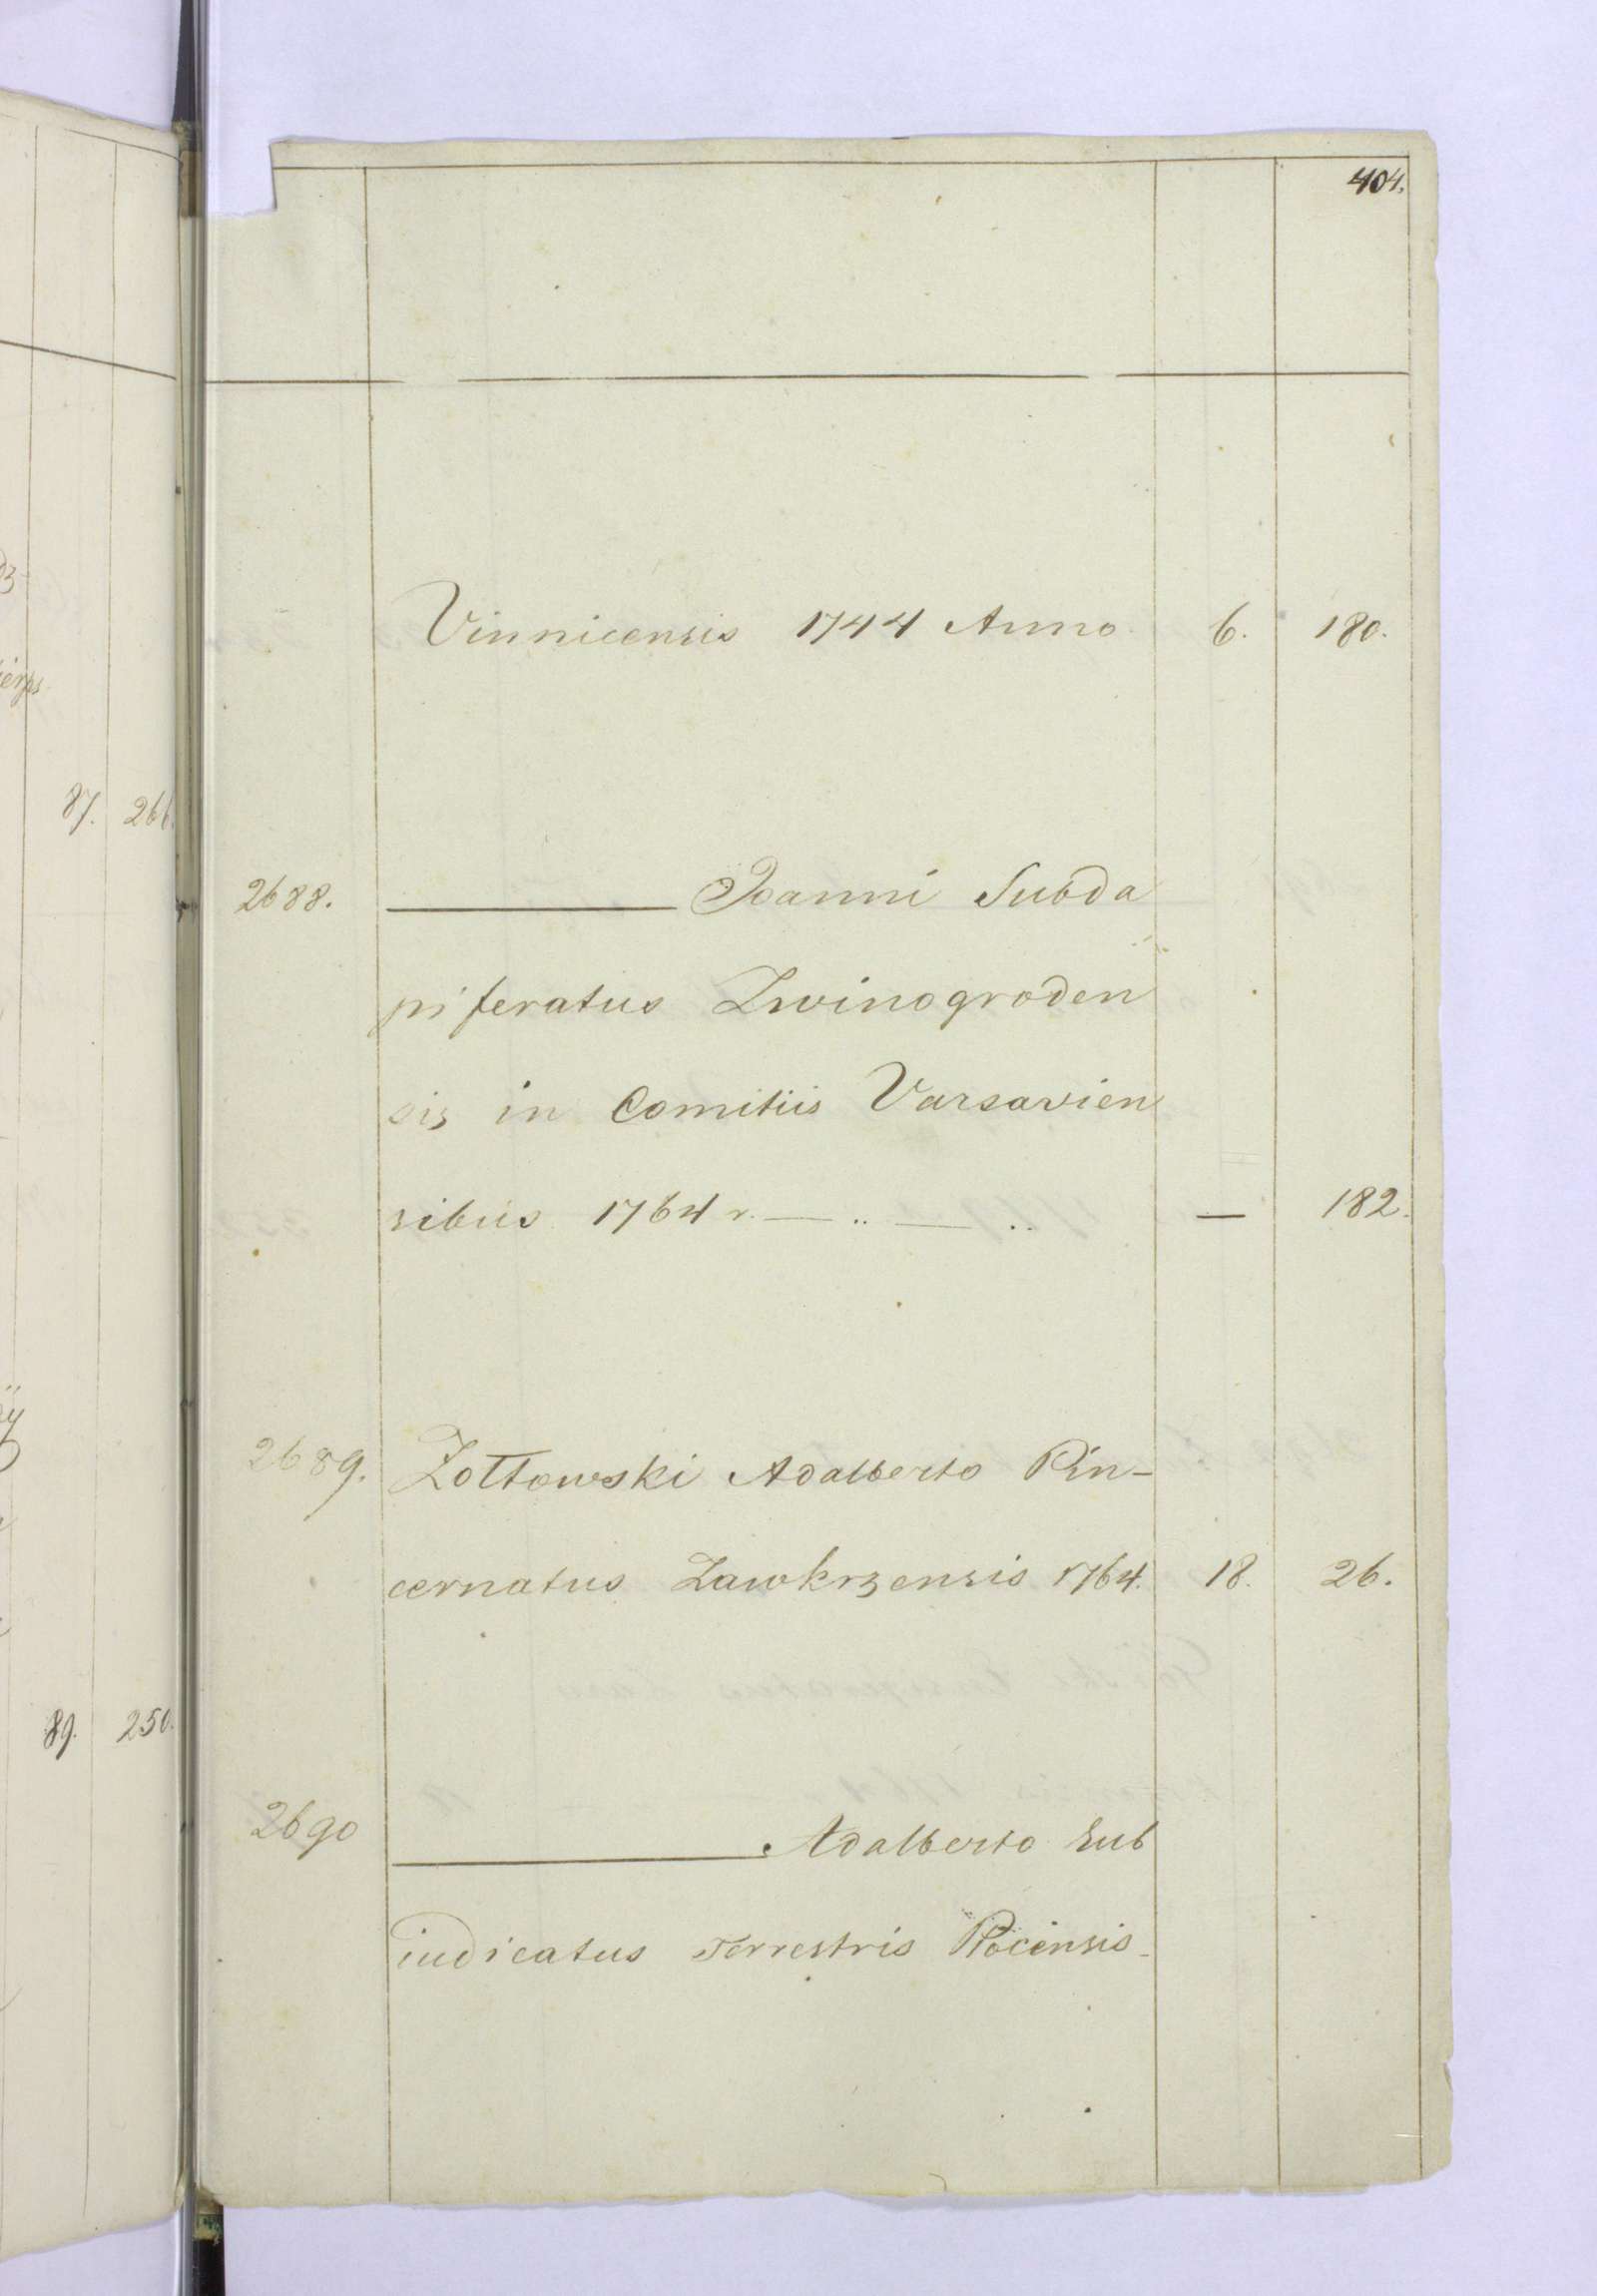 404.
Vinnicensis 1744 Anno 6. 180.
2688. ——— Joanni Subda
piferatus Zwinogroden
sis in Comitiis Varsavien
sibus 1764 r. — .. — .. — 182.
2689. Zołtowski Adalberto Pin-
cernatus Zawkrzensis 1764. 18. 26.
2690 ——— Adalberto Sub
iudicatus Terrestris Płocensis
87. 266.
89. 250.